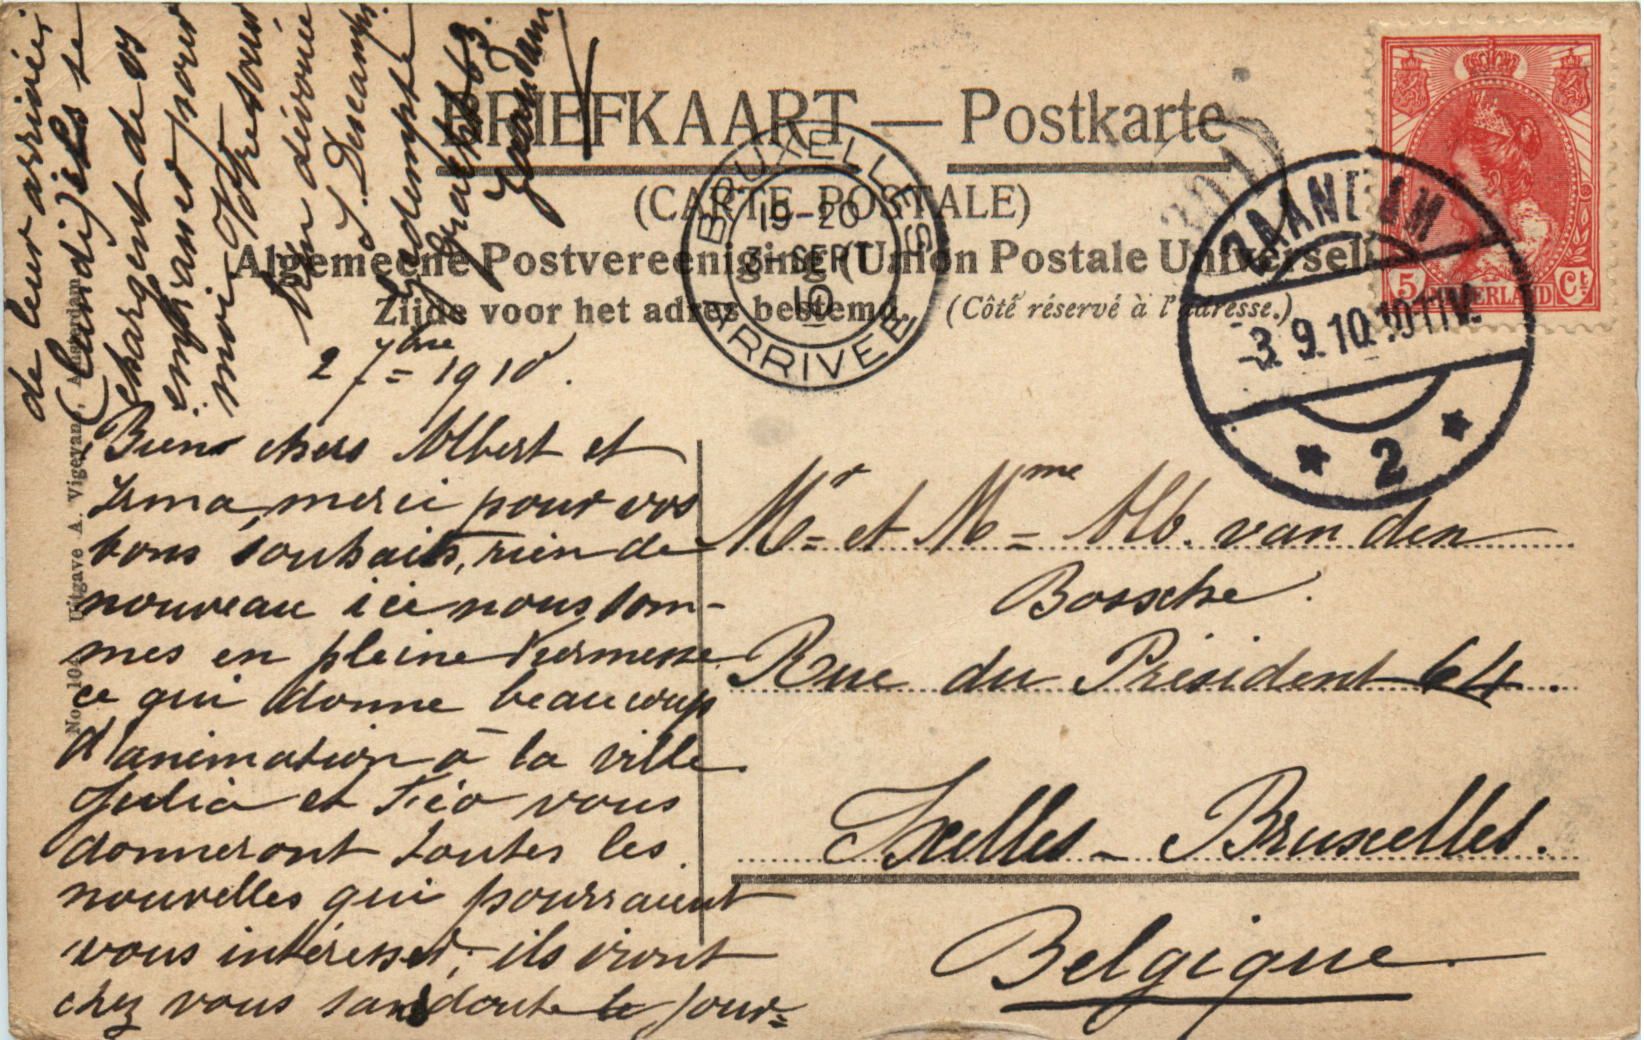 BRIEFKAART — Postkarte
(CARTE POSTALE)
Algemeene Postvereeniging (Union Postale Universelle)
Zijde voor het adres bestemd. (Côté réservé à l'adresse.)
BRUXELLES
19-20
3 SEPT
10
ARRIVEE
ZAANDAM
-3.9.10.10-11V.
2
5 NEDERLAND Ct
No. 104 Uitgave A. Vigevano, Amsterdam
2 7bre 1910.
Bien chers Albert et
Irma, merci pour vos
bons souhaits, rien de
nouveau ici nous som-
mes en pleine Kermesse
ce qui donne beaucoup
d'animation à la ville.
Julia et Léo vous
donneront toutes les
nouvelles qui pourraient
vous intéresser; ils iront
chez vous sans doute le jour
de leur arrivée,
(lundi) ils se
chargent de vs
embrasser pour
moi. Votre tours
bien dévouée
J. Descamps
Gedempte
Gracht 63.
Zaandam
Mr et Mme Alb. van den
Bossche.
Rue du Président 64.
Ixelles - Bruxelles.
Belgique